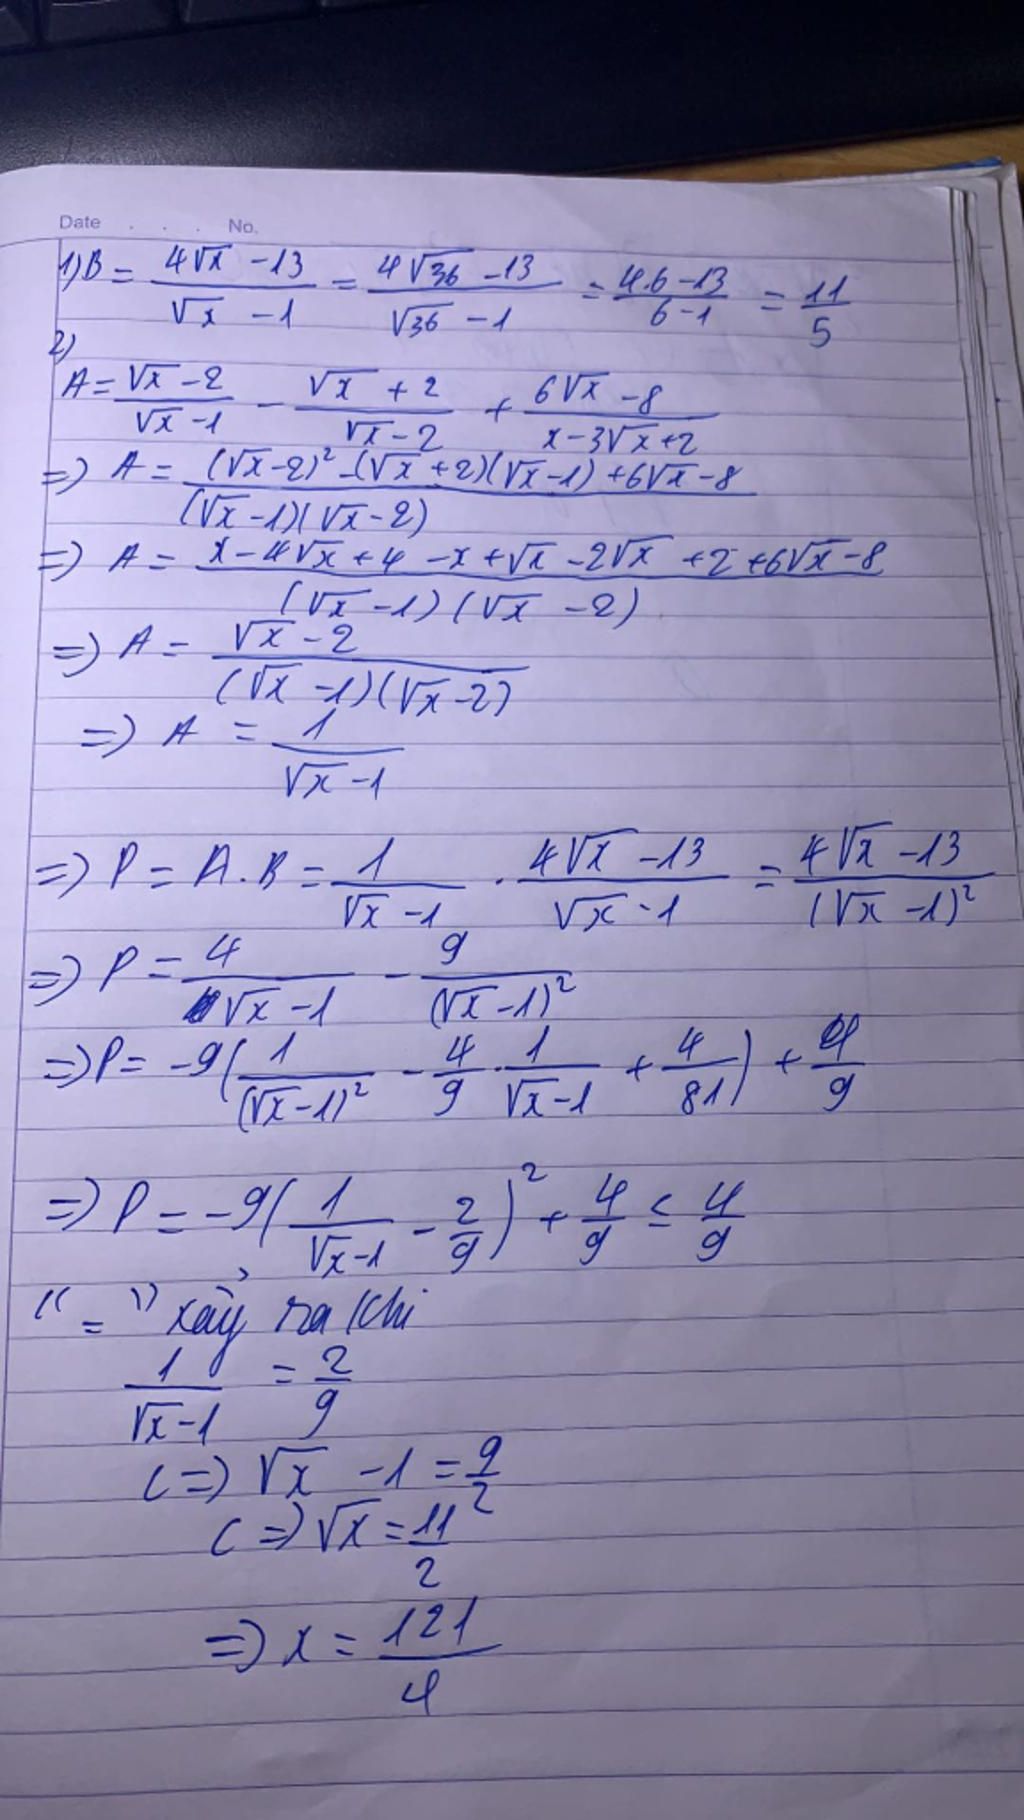 Date . . . No.
1) B = \frac{4\sqrt{x} - 13}{\sqrt{x} - 1} = \frac{4\sqrt{36} - 13}{\sqrt{36} - 1} = \frac{4.6 - 13}{6 - 1} = \frac{11}{5}
2)
A = \frac{\sqrt{x} - 2}{\sqrt{x} - 1} - \frac{\sqrt{x} + 2}{\sqrt{x} - 2} + \frac{6\sqrt{x} - 8}{x - 3\sqrt{x} + 2}
=) A = \frac{(\sqrt{x} - 2)^2 - (\sqrt{x} + 2)(\sqrt{x} - 1) + 6\sqrt{x} - 8}{(\sqrt{x} - 1)(\sqrt{x} - 2)}
=) A = \frac{x - 4\sqrt{x} + 4 - x + \sqrt{x} - 2\sqrt{x} + 2 + 6\sqrt{x} - 8}{(\sqrt{x} - 1)(\sqrt{x} - 2)}
=) A = \frac{\sqrt{x} - 2}{(\sqrt{x} - 1)(\sqrt{x} - 2)}
=) A = \frac{1}{\sqrt{x} - 1}
=) P = A.B = \frac{1}{\sqrt{x} - 1} . \frac{4\sqrt{x} - 13}{\sqrt{x} - 1} = \frac{4\sqrt{x} - 13}{(\sqrt{x} - 1)^2}
=) P = \frac{4}{\sqrt{x} - 1} - \frac{9}{(\sqrt{x} - 1)^2}
=) P = -9(\frac{1}{(\sqrt{x} - 1)^2} - \frac{4}{9} . \frac{1}{\sqrt{x} - 1} + \frac{4}{81}) + \frac{4}{9}
=) P = -9(\frac{1}{\sqrt{x} - 1} - \frac{2}{9})^2 + \frac{4}{9} ≤ \frac{4}{9}
"=" xảy ra khi
\frac{1}{\sqrt{x} - 1} = \frac{2}{9}
(=) \sqrt{x} - 1 = \frac{9}{2}
(=) \sqrt{x} = \frac{11}{2}
=) x = \frac{121}{4}